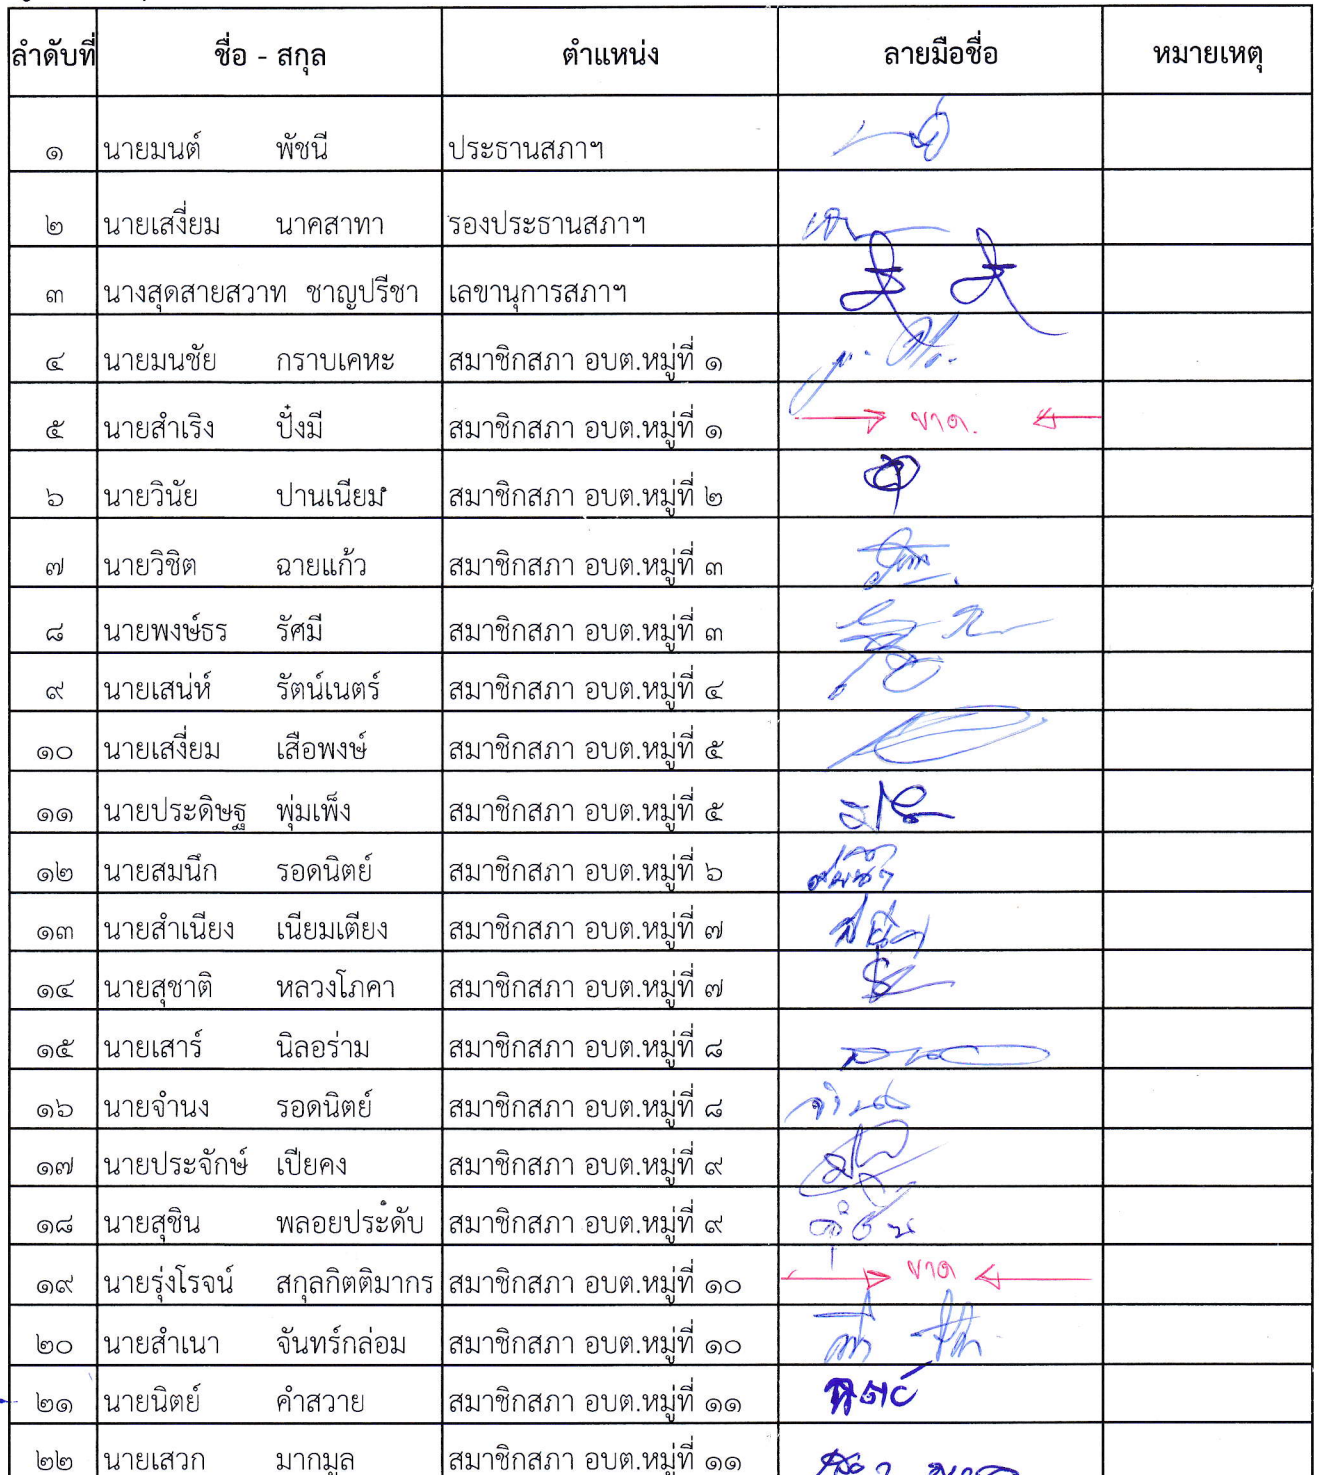 ลำดับที่ ชื่อ - สกุล ตำแหน่ง ลายมือชื่อ หมายเหตุ
๑ นายมนต์ พัชนี ประธานสภาฯ
๒ นายเสงี่ยม นาคสาทา รองประธานสภาฯ
๓ นางสุดสายสวาท ชาญปรีชา เลขานุการสภาฯ
๔ นายมนชัย กราบเคหะ สมาชิกสภา อบต.หมู่ที่ ๑
๕ นายสำเริง ปั๋งมี สมาชิกสภา อบต.หมู่ที่ ๑ ขาด.
๖ นายวินัย ปานเนียม สมาชิกสภา อบต.หมู่ที่ ๒
๗ นายวิชิต ฉายแก้ว สมาชิกสภา อบต.หมู่ที่ ๓
๘ นายพงษ์ธร รัศมี สมาชิกสภา อบต.หมู่ที่ ๓
๙ นายเสน่ห์ รัตน์เนตร์ สมาชิกสภา อบต.หมู่ที่ ๔
๑๐ นายเสงี่ยม เสือพงษ์ สมาชิกสภา อบต.หมู่ที่ ๕
๑๑ นายประดิษฐ พุ่มเพ็ง สมาชิกสภา อบต.หมู่ที่ ๕
๑๒ นายสมนึก รอดนิตย์ สมาชิกสภา อบต.หมู่ที่ ๖
๑๓ นายสำเนียง เนียมเตียง สมาชิกสภา อบต.หมู่ที่ ๗
๑๔ นายสุชาติ หลวงโภคา สมาชิกสภา อบต.หมู่ที่ ๗
๑๕ นายเสาร์ นิลอร่าม สมาชิกสภา อบต.หมู่ที่ ๘
๑๖ นายจำนง รอดนิตย์ สมาชิกสภา อบต.หมู่ที่ ๘
๑๗ นายประจักษ์ เปียคง สมาชิกสภา อบต.หมู่ที่ ๙
๑๘ นายสุชิน พลอยประดับ สมาชิกสภา อบต.หมู่ที่ ๙
๑๙ นายรุ่งโรจน์ สกุลกิตติมากร สมาชิกสภา อบต.หมู่ที่ ๑๐ ขาด
๒๐ นายสำเนา จันทร์กล่อม สมาชิกสภา อบต.หมู่ที่ ๑๐
๒๑ นายนิตย์ คำสวาย สมาชิกสภา อบต.หมู่ที่ ๑๑
๒๒ นายเสวก มากมูล สมาชิกสภา อบต.หมู่ที่ ๑๑